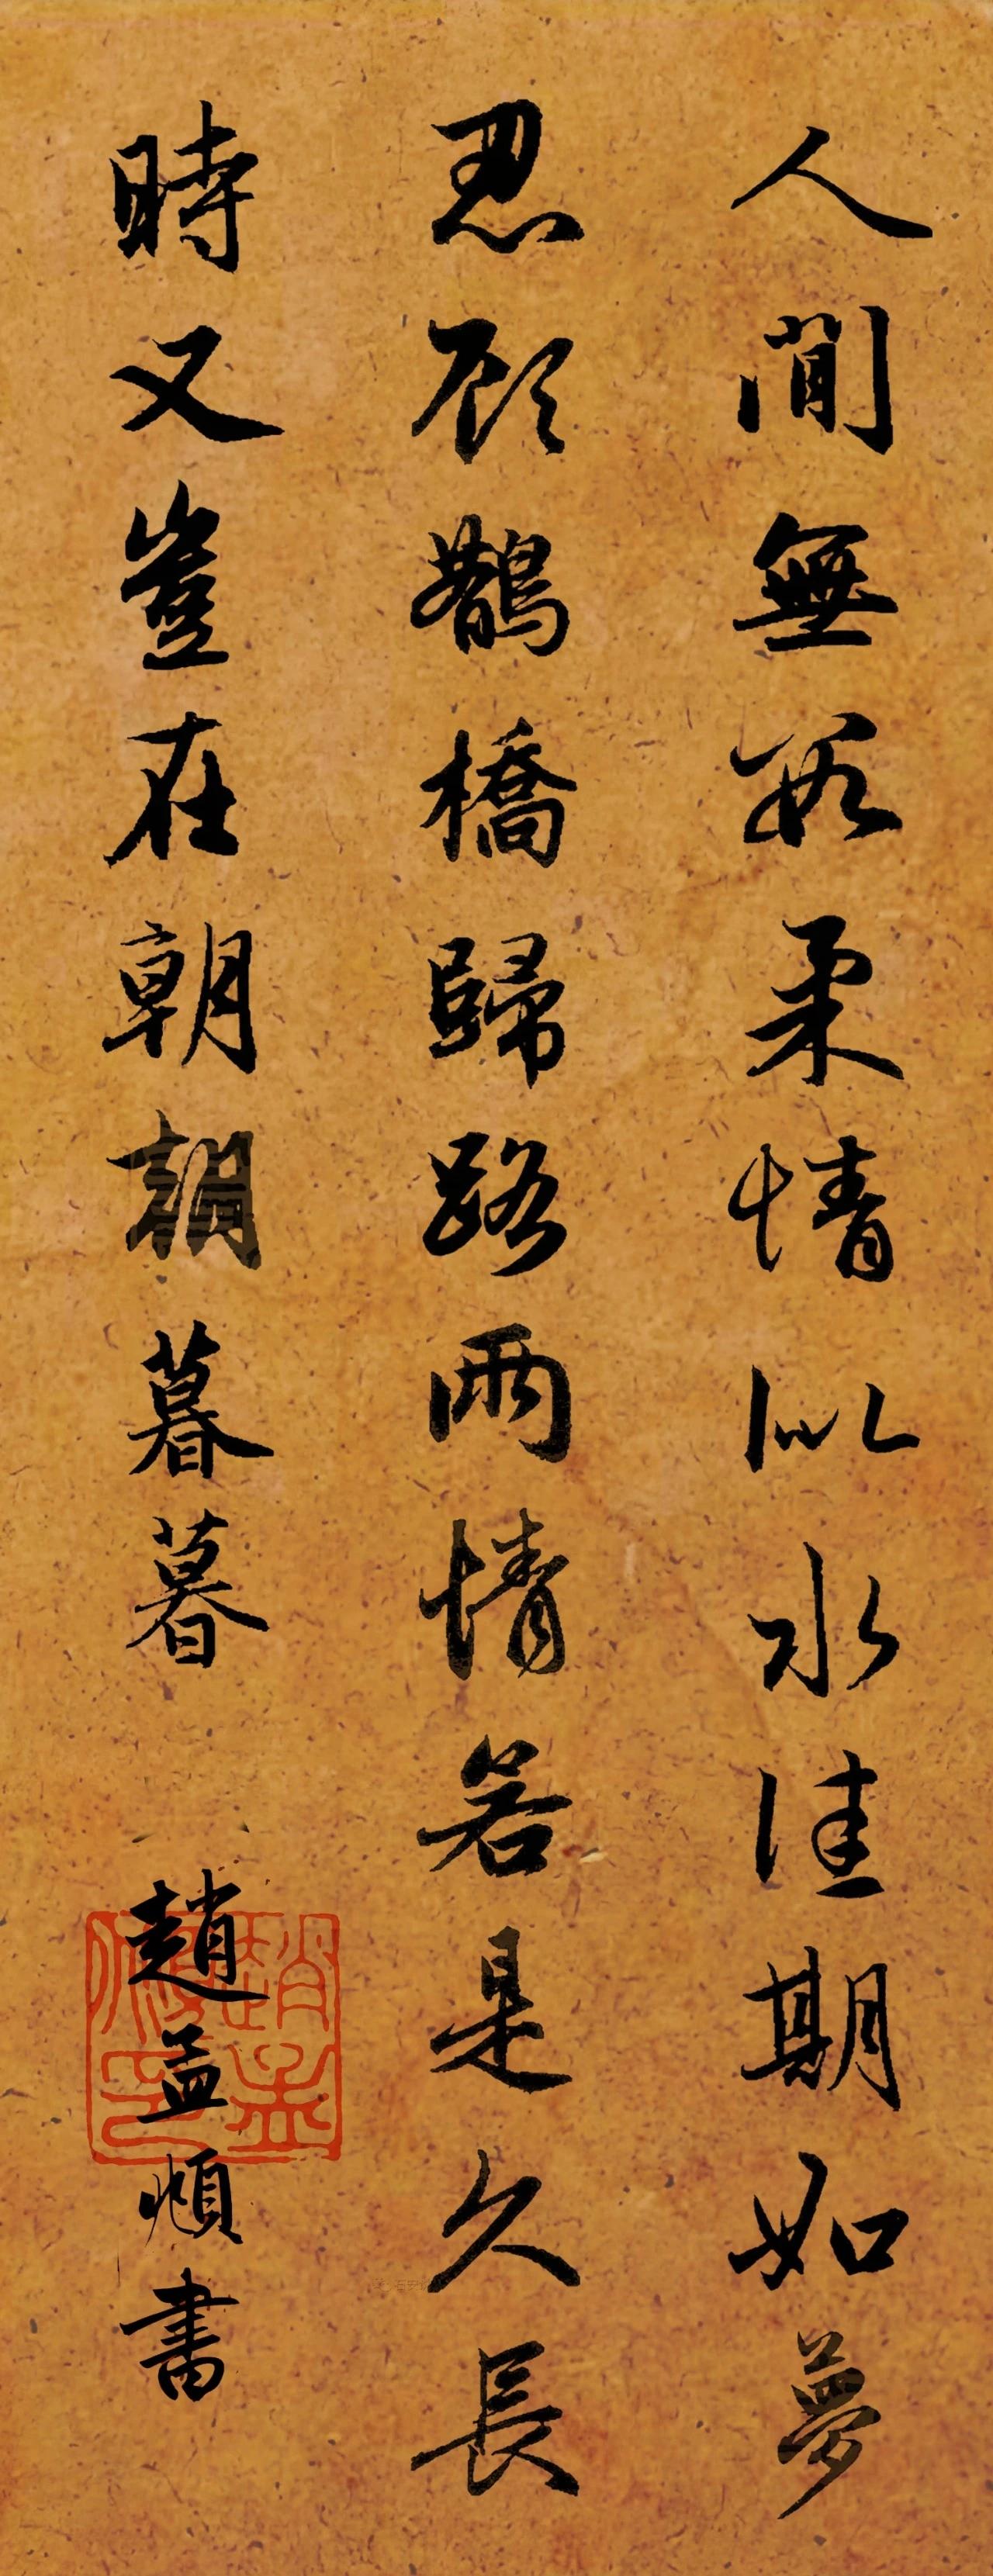 人間無數柔情似水佳期如夢
忍顧鵲橋歸路兩情若是久長
時又豈在朝朝暮暮
趙孟頫書
趙孟頫印